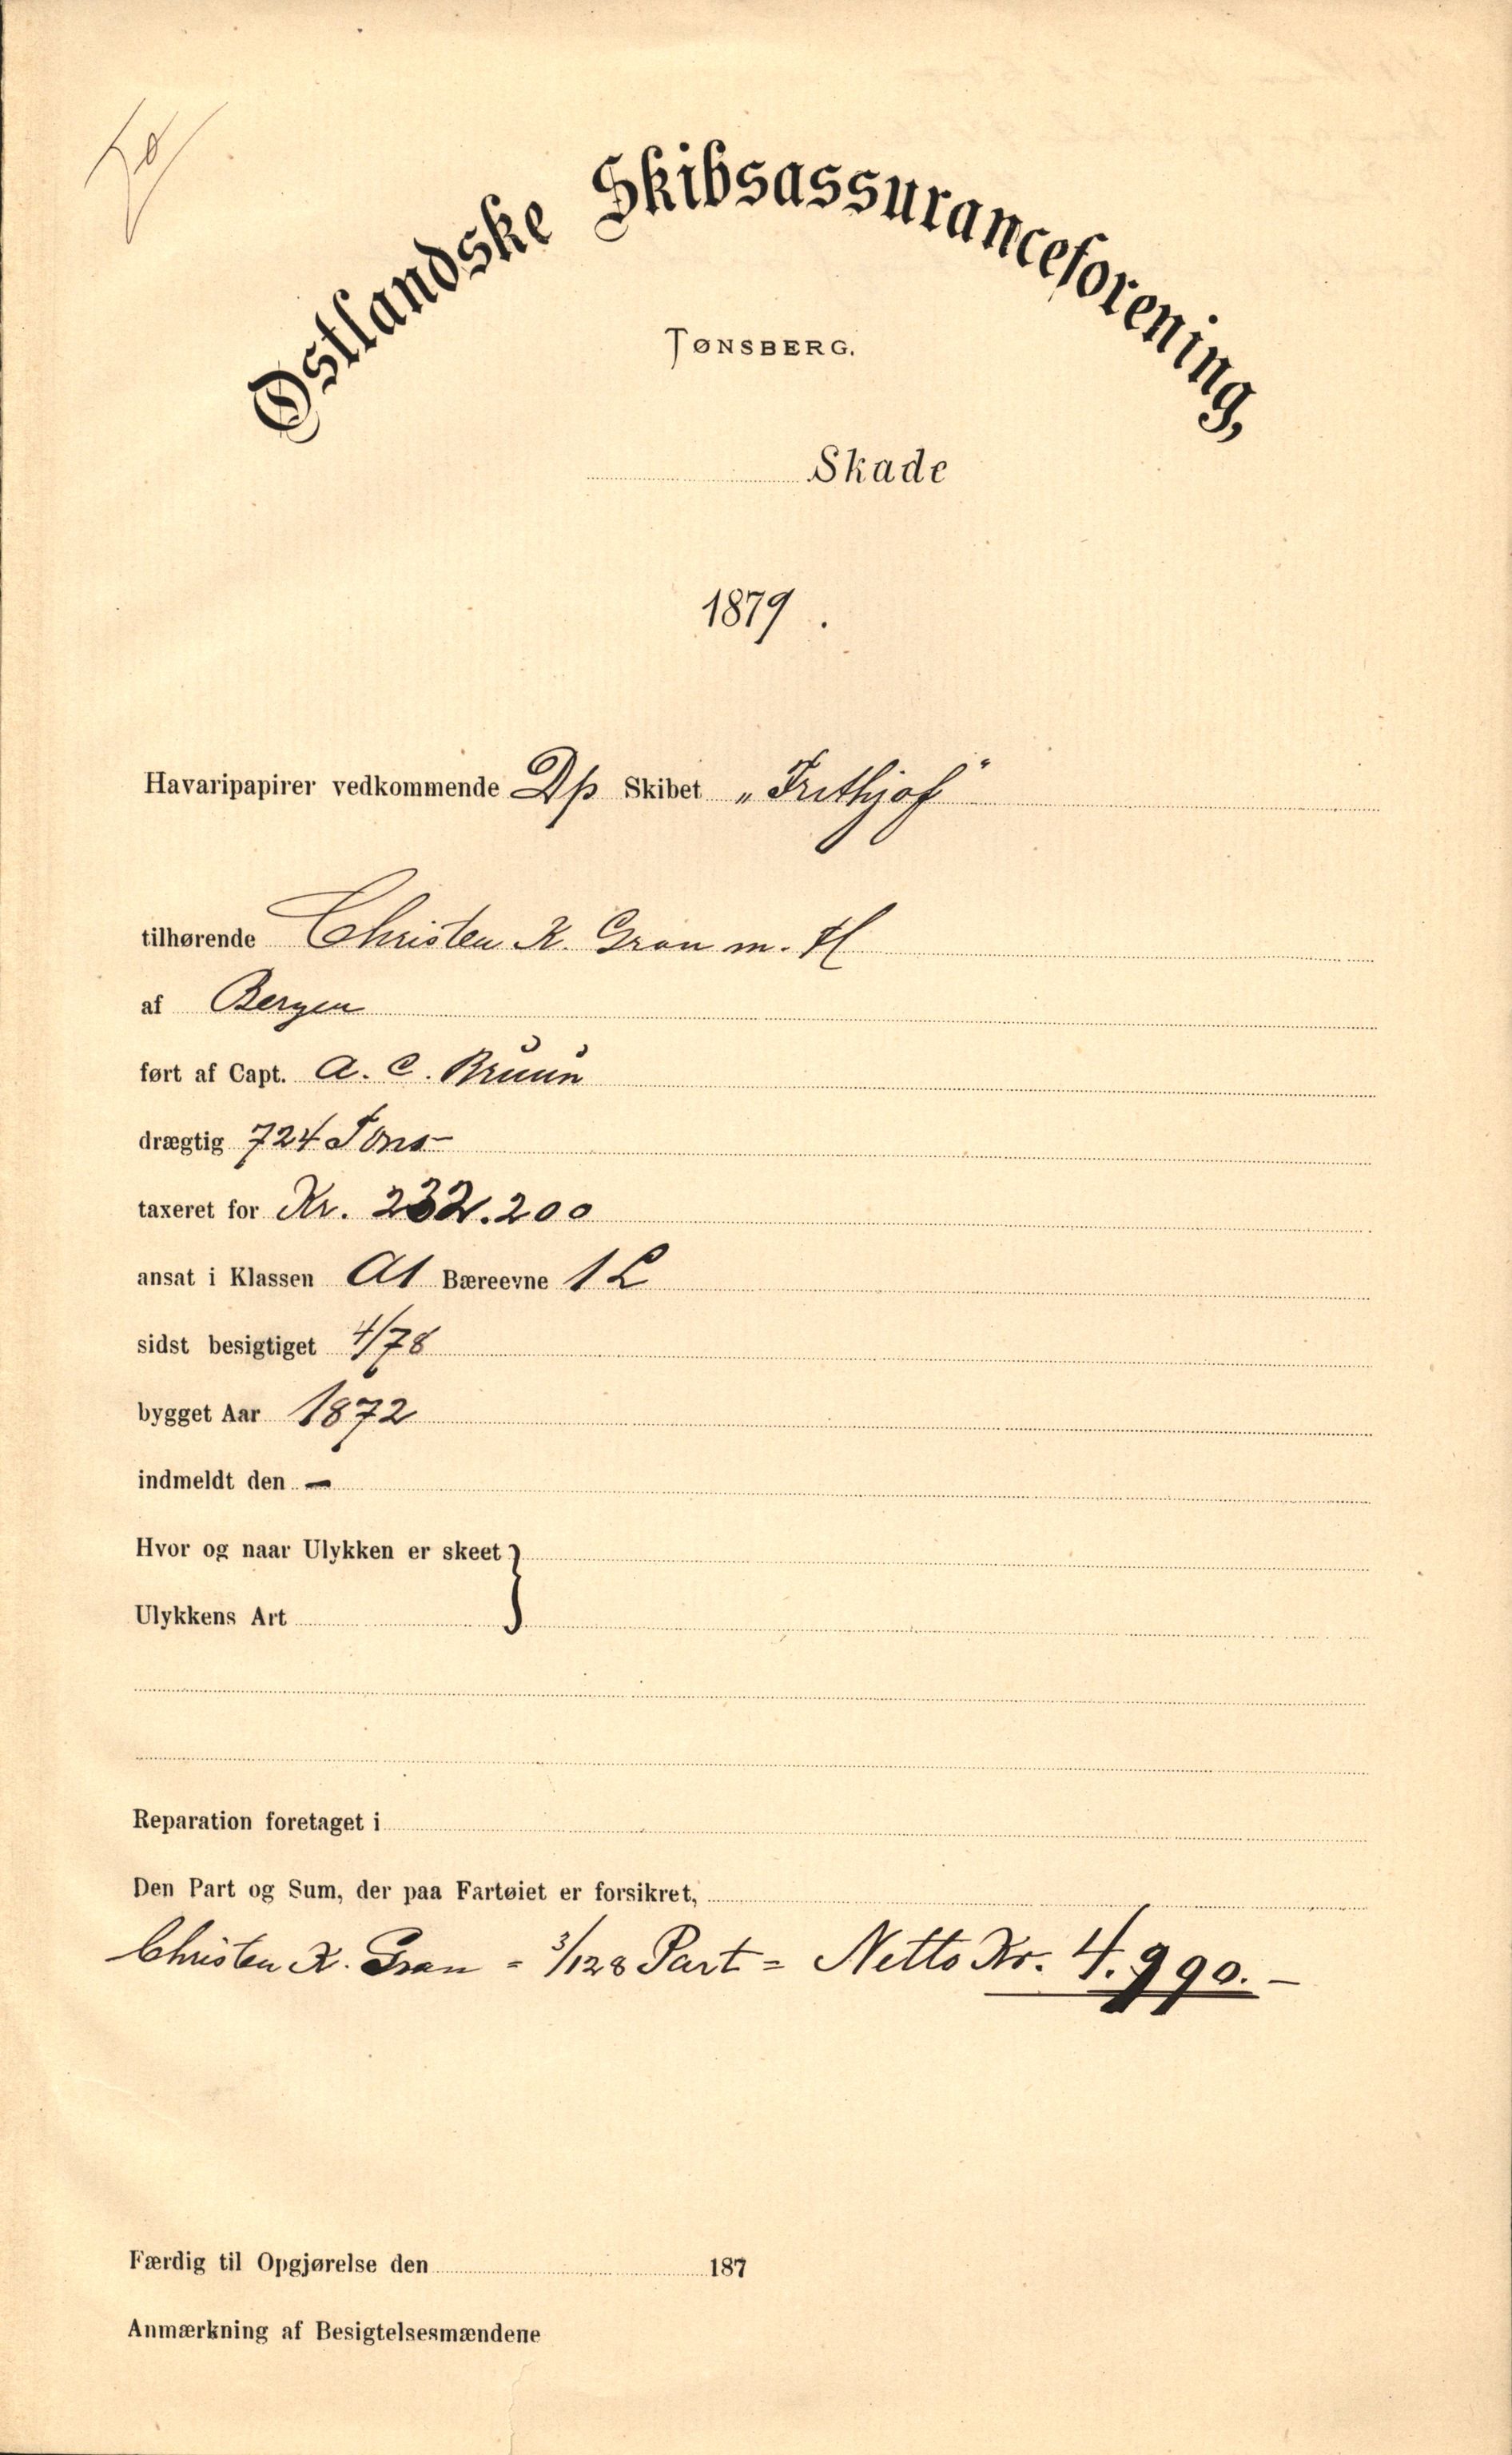 Østlandske Skibsassuranceforening,
TØNSBERG.
Skade
1879.
Havaripapirer vedkommende Dp Skibet „Frithjof"
tilhørende Christen K. Gran m. fl
af Bergen
ført af Capt. A. C. Bruun
drægtig 724 Tons
taxeret for Kr. 232.200
ansat i Klassen A1 Bæreevne 1 L
sidst besigtiget 4/78
bygget Aar 1872
indmeldt den —
Hvor og naar Ulykken er skeet }
Ulykkens Art
Reparation foretaget i
Den Part og Sum, der paa Fartøiet er forsikret,
Christen K. Gran = 3/128 Part = Netto Kr. 4.990. —
Færdig til Opgjørelse den 187
Anmærkning af Besigtelsesmændene